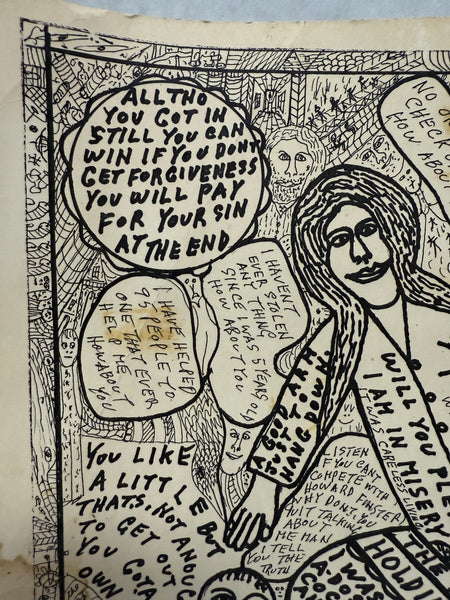 ALLTHO
YOU GOT IN
STILL YOU CAN
WIN IF YOU DONT
GET FORGIVENESS
YOU WILL PAY
FOR YOUR SIN
AT THE END
NO
CHECK
HOW ABOU
I HAVENT
EVER STOLEN
ANY THING
SINCE I WAS 5 YEARS OLD
HOW ABOUT YOU
I HAVE HELPED
95 PEOPLE TO
ONE THAT EVER
HELP ME
HOW ABOUT
YOU
A GOOD ARM
JUST GOT TO
HANG DOWN
WILL YOU PLE
I AM IN MISERY
I WAS CARELESS LIVING
YOU LIKE
A LITTLE BUT
THATS, NOT ANOUG
TO GET OUT
YOU GOTA
OWN
LISTEN
IF YOU CANT
COMPETE WITH
HOWARD FINSTER
WHY DONT, YOU
QUIT TALKING
ABOUT
ME MAN
I TELL
YOU THE
TRUTH
THE
HOLDI
I WAS
A-DOS
COC